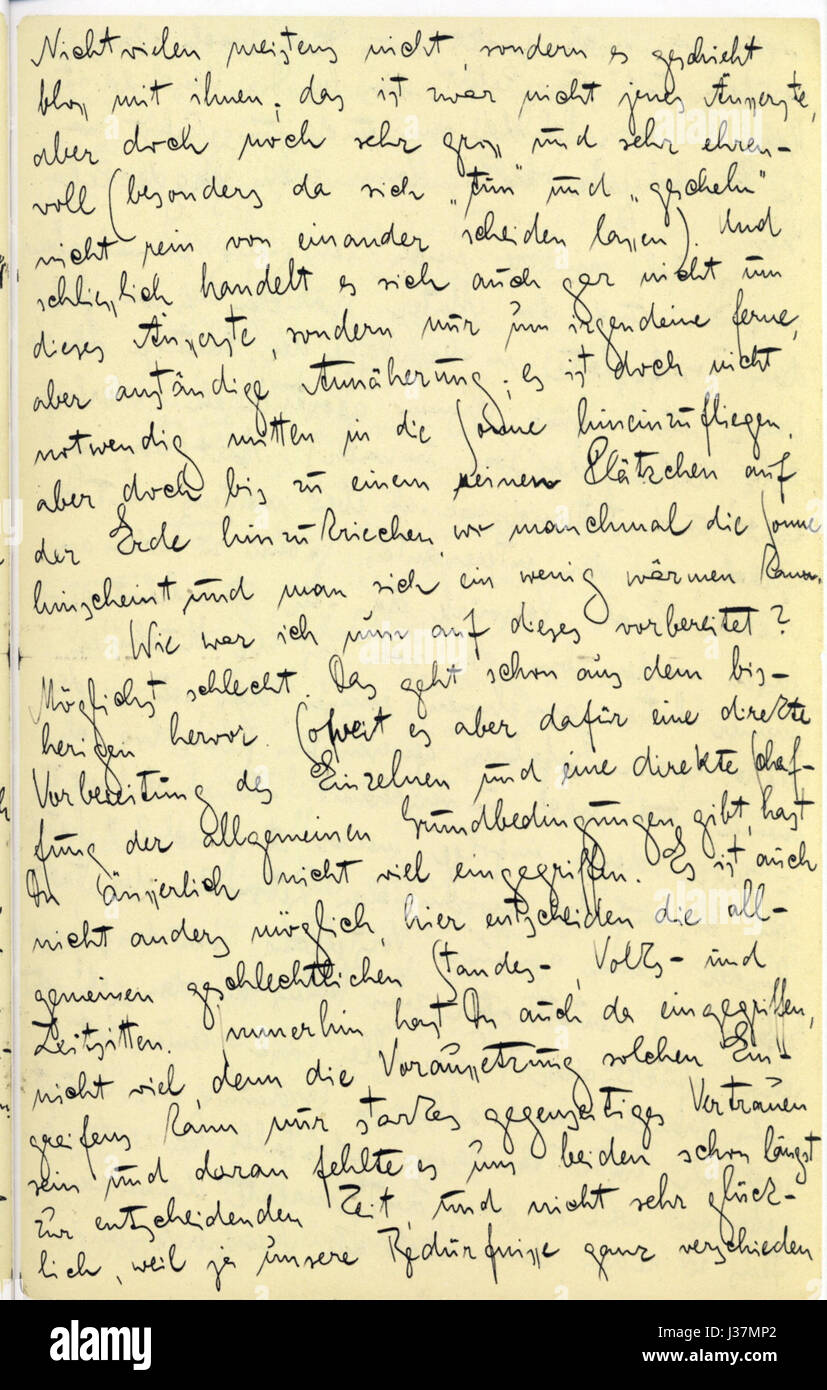 Nichtvielen meistens nicht, sondern es geschieht
bloss mit ihnen; das ist zwar nicht jenes Äusserste,
aber doch noch sehr gross und sehr ehren-
voll (besonders da sich „tun" und „geschehn"
nicht rein von einander scheiden lassen). Und
schliesslich handelt es sich auch gar nicht um
dieses Äusserste, sondern nur um irgendeine ferne,
aber anständige Annäherung; es ist doch nicht
notwendig mitten in die Sonne hineinzufliegen,
aber doch bis zu einem reinen Plätzchen auf
der Erde hinzukriechen, wo manchmal die Sonne
hinscheint und man sich ein wenig wärmen kann.
Wie war ich nun auf dieses vorbereitet?
Möglichst schlecht. Das geht schon aus dem bis-
herigen hervor. Soweit es aber dafür eine direkte
Vorbereitung des Einzelnen und eine direkte Schaf-
fung der allgemeinen Grundbedingungen gibt, hast
Du äusserlich nicht viel eingegriffen. Es ist auch
nicht anders möglich, hier entscheiden die all-
gemeinen geschlechtlichen Standes-, Volks- und
Zeitsitten. Immerhin hast Du auch da eingegriffen,
nicht viel, denn die Voraussetzung solchen Ein-
greifens kann nur starkes gegenseitiges Vertrauen
sein und daran fehlte es uns beiden schon längst
zur entscheidenden Zeit, und nicht sehr glück-
lich, weil ja unsere Bedürfnisse ganz verschieden
alamy
Image ID: J37MP2
www.alamy.com